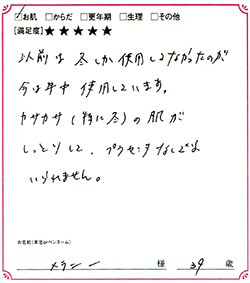 ☑お肌 □からだ □更年期 □生理 □その他
[満足度]★★★★★
以前は 冬しか使用してなかったのが
今は年中 使用しています。
カサカサ(特に冬)の肌が
しっとりして、プラセンタなしでは
いられません。
お名前[本名orペンネーム]
メラニー 様 39 歳